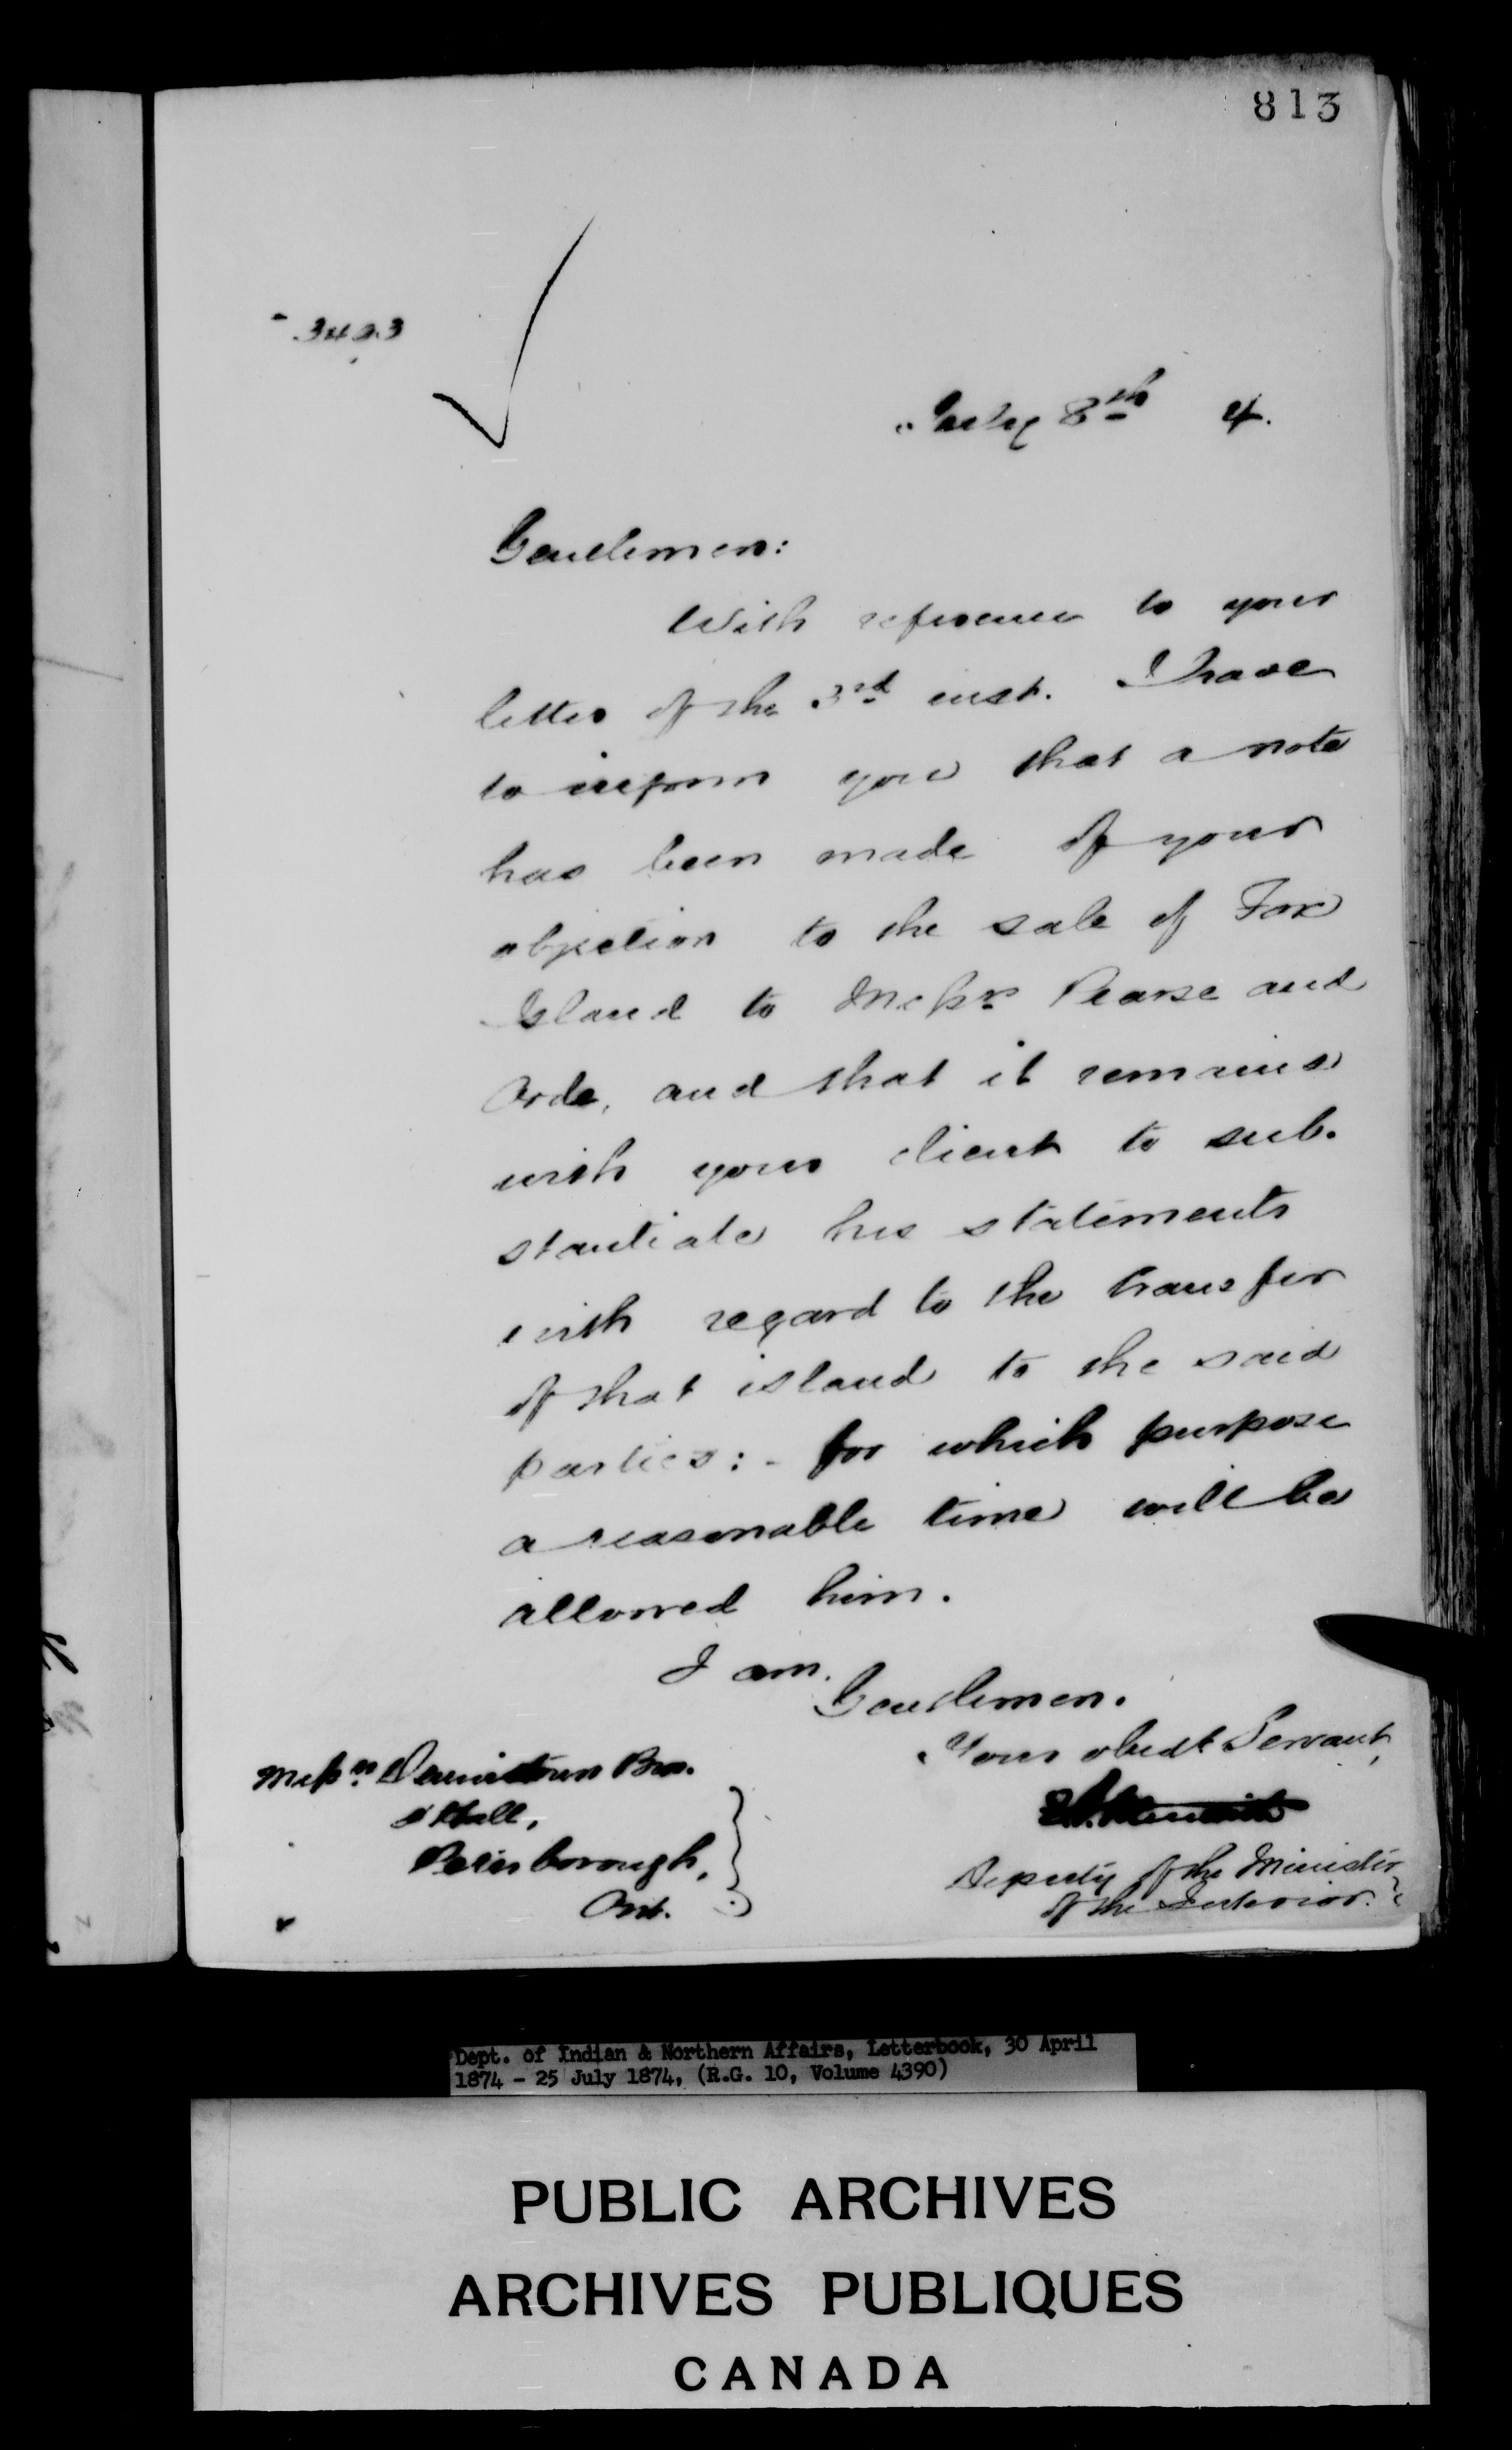 813
3423
July 8th 4.
Gentlemen:
With reference to your
letter of the 3rd inst. I have
to inform you that a note
has been made of your
objection to the sale of Fox
Island to Messrs Pearse and
Orde, and that it remains
with your client to sub-
stantiate his statements
with regard to the transfer
of that island to the said
parties:- for which purpose
a reasonable time will be
allowed him.
I am.
Gentlemen.
Your obedt Servant,
Deputy of the Minister
of the Interior.
Messrs Dennistoun Bros.
& Hall,
Peterborough,
Ont.
Dept. of Indian & Northern Affairs, Letterbook, 30 April
1874 - 25 July 1874, (R.G. 10, Volume 4390)
PUBLIC ARCHIVES
ARCHIVES PUBLIQUES
CANADA